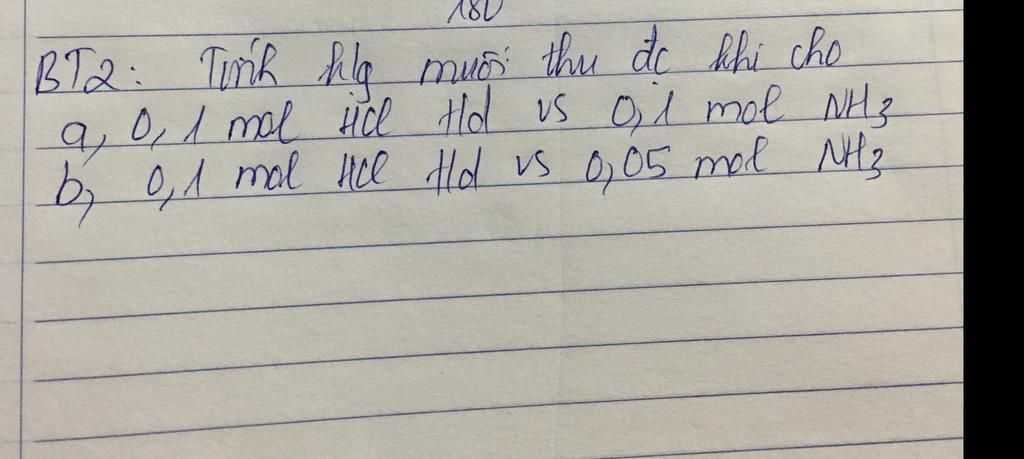 180
BT2: Tính klg muối thu đc khi cho
a, 0,1 mol HCl t/d vs 0,1 mol NH3
b, 0,1 mol HCl t/d vs 0,05 mol NH3